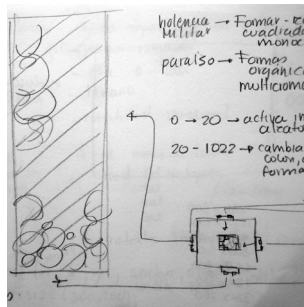 violencia → Formar - re
militar cuadrado
monoc
paraíso → Formas
orgánica
multicroma
0 → 20 → activa in
aleato
20 - 1022 → cambia
color,
forma